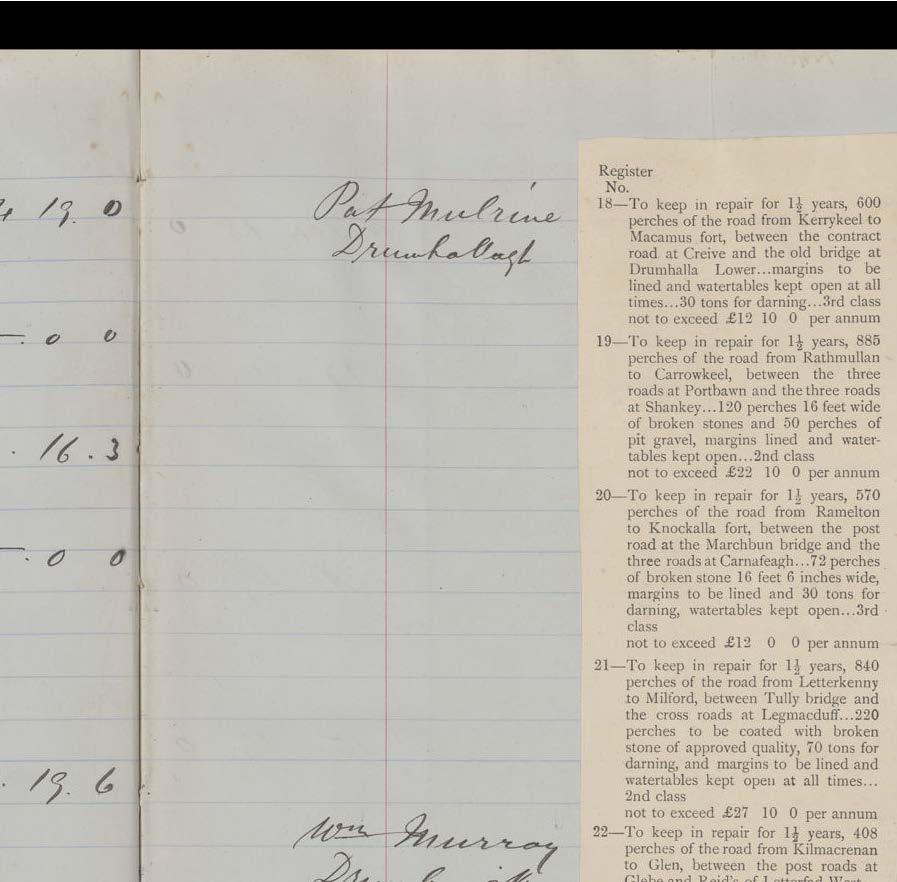 19. 0
. 0 0
. 16. 3
. 0 0
. 19. 6
Pat Mulrine
Drumhallagh
Wm Murray
Register
No.
18—To keep in repair for 1½ years, 600
perches of the road from Kerrykeel to
Macamus fort, between the contract
road at Creive and the old bridge at
Drumhalla Lower...margins to be
lined and watertables kept open at all
times...30 tons for darning...3rd class
not to exceed £12 10 0 per annum
19—To keep in repair for 1½ years, 885
perches of the road from Rathmullan
to Carrowkeel, between the three
roads at Portbawn and the three roads
at Shankey...120 perches 16 feet wide
of broken stones and 50 perches of
pit gravel, margins lined and water-
tables kept open...2nd class
not to exceed £22 10 0 per annum
20—To keep in repair for 1½ years, 570
perches of the road from Ramelton
to Knockalla fort, between the post
road at the Marchbun bridge and the
three roads at Carnafeagh...72 perches
of broken stone 16 feet 6 inches wide,
margins to be lined and 30 tons for
darning, watertables kept open...3rd
class
not to exceed £12 0 0 per annum
21—To keep in repair for 1½ years, 840
perches of the road from Letterkenny
to Milford, between Tully bridge and
the cross roads at Legmacduff...220
perches to be coated with broken
stone of approved quality, 70 tons for
darning, and margins to be lined and
watertables kept open at all times...
2nd class
not to exceed £27 10 0 per annum
22—To keep in repair for 1½ years, 408
perches of the road from Kilmacrenan
to Glen, between the post roads at
Glebe and Reid's of Letterfad West